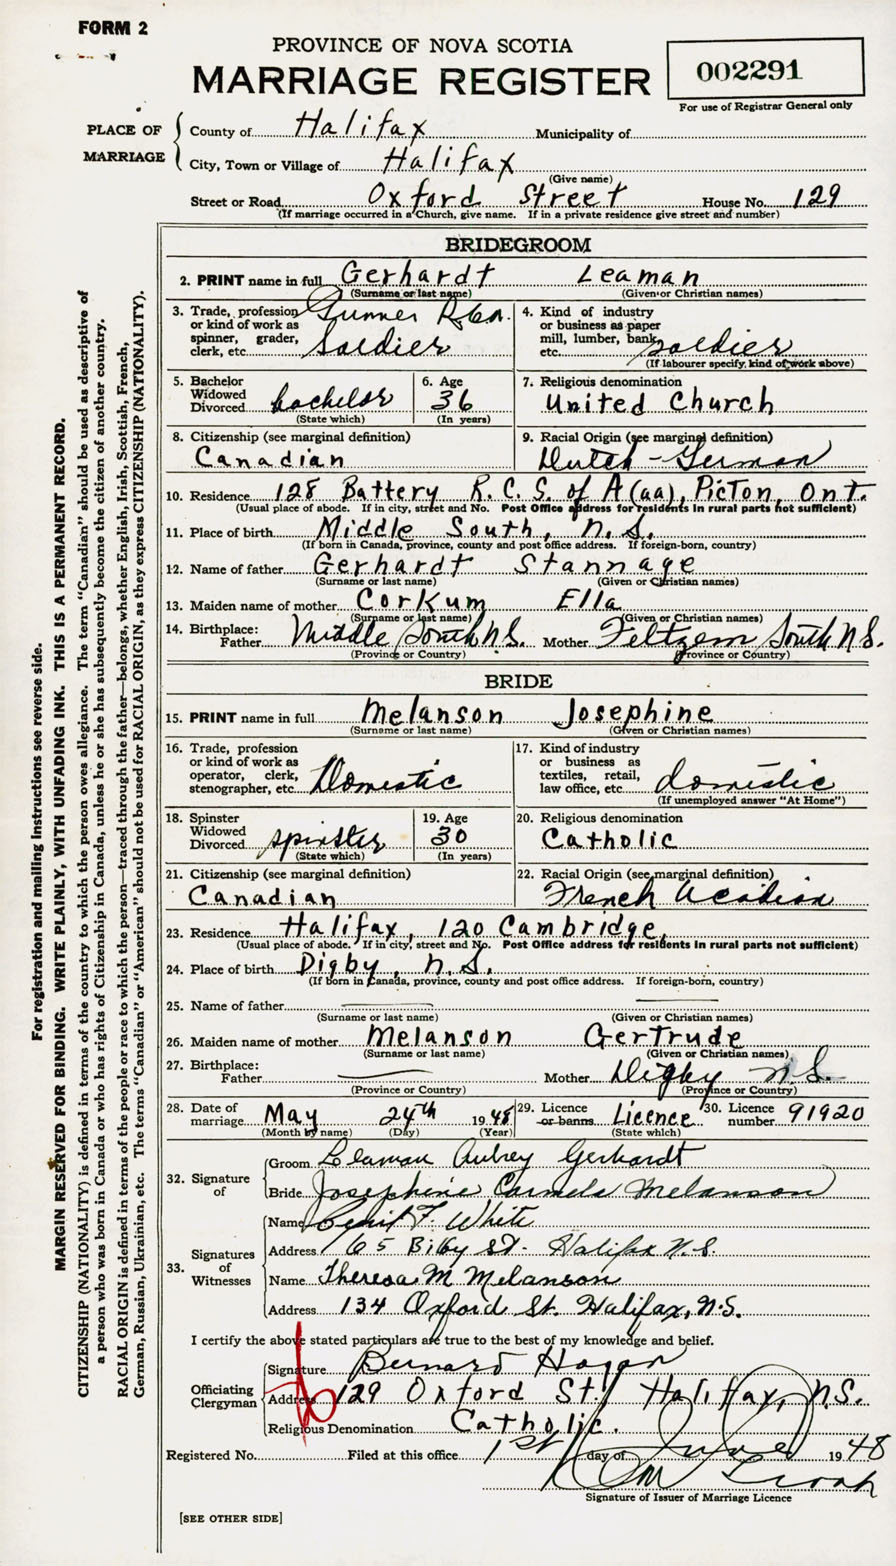 FORM 2
PROVINCE OF NOVA SCOTIA
MARRIAGE REGISTER
002291
For use of Registrar General only
PLACE OF MARRIAGE
County of Halifax Municipality of
City, Town or Village of Halifax
(Give name)
Street or Road Oxford Street House No. 129
(If marriage occurred in a Church, give name. If in a private residence give street and number)
BRIDEGROOM
2. PRINT name in full Gerhardt Leaman
(Surname or last name) (Given or Christian names)
3. Trade, profession or kind of work as spinner, grader, clerk, etc. Gunner Soldier
4. Kind of industry or business as paper mill, lumber, bank, etc. Soldier
(If labourer specify, kind of work above)
5. Bachelor Widowed Divorced bachelor
(State which)
6. Age 36
(In years)
7. Religious denomination
United Church
8. Citizenship (see marginal definition)
Canadian
9. Racial Origin (see marginal definition)
Dutch - German
10. Residence 128 Battery R.C.S. of A (aa), Picton, Ont.
(Usual place of abode. If in city, street and No. Post Office address for residents in rural parts not sufficient)
11. Place of birth Middle South, N.S.
(If born in Canada, province, county and post office address. If foreign-born, country)
12. Name of father Gerhardt Stannage
(Surname or last name) (Given or Christian names)
13. Maiden name of mother Corkum Ella
(Surname or last name) (Given or Christian names)
14. Birthplace:
Father Middle South N.S. Mother Feltzen South N.S.
(Province or Country) (Province or Country)
BRIDE
15. PRINT name in full Melanson Josephine
(Surname or last name) (Given or Christian names)
16. Trade, profession or kind of work as operator, clerk, stenographer, etc. Domestic
17. Kind of industry or business as textiles, retail, law office, etc. domestic
(If unemployed answer "At Home")
18. Spinster Widowed Divorced spinster
(State which)
19. Age 30
(In years)
20. Religious denomination
Catholic
21. Citizenship (see marginal definition)
Canadian
22. Racial Origin (see marginal definition)
French Acadian
23. Residence Halifax, 120 Cambridge,
(Usual place of abode. If in city, street and No. Post Office address for residents in rural parts not sufficient)
24. Place of birth Digby, N.S.
(If born in Canada, province, county and post office address. If foreign-born, country)
25. Name of father
(Surname or last name) (Given or Christian names)
26. Maiden name of mother Melanson Gertrude
(Surname or last name) (Given or Christian names)
27. Birthplace:
Father Mother Digby N.S.
(Province or Country) (Province or Country)
28. Date of marriage May 24th 1948
(Month by name) (Day) (Year)
29. Licence or banns Licence
(State which)
30. Licence number 91920
32. Signature of
Groom Leaman Aubrey Gerhardt
Bride Josephine Carmela Melanson
33. Signatures of Witnesses
Name F. White
Address 65 Bilby St. Halifax N.S.
Name Theresa M Melanson
Address 134 Oxford St. Halifax, N.S.
I certify the above stated particulars are true to the best of my knowledge and belief.
Officiating Clergyman
Signature Bernard Hogan
Address 129 Oxford St. Halifax, N.S.
Religious Denomination Catholic.
Registered No. Filed at this office 1st day of June 1948
Signature of Issuer of Marriage Licence
[SEE OTHER SIDE]
For registration and mailing instructions see reverse side.
MARGIN RESERVED FOR BINDING. WRITE PLAINLY, WITH UNFADING INK. THIS IS A PERMANENT RECORD.
CITIZENSHIP (NATIONALITY) is defined in terms of the country to which the person owes allegiance. The term "Canadian" should be used as descriptive of
a person who was born in Canada or who has rights of Citizenship in Canada, unless he or she has subsequently become the citizen of another country.
RACIAL ORIGIN is defined in terms of the people or race to which the person—traced through the father—belongs, whether English, Irish, Scottish, French,
German, Russian, Ukrainian, etc. The terms "Canadian" or "American" should not be used for RACIAL ORIGIN, as they express CITIZENSHIP (NATIONALITY).